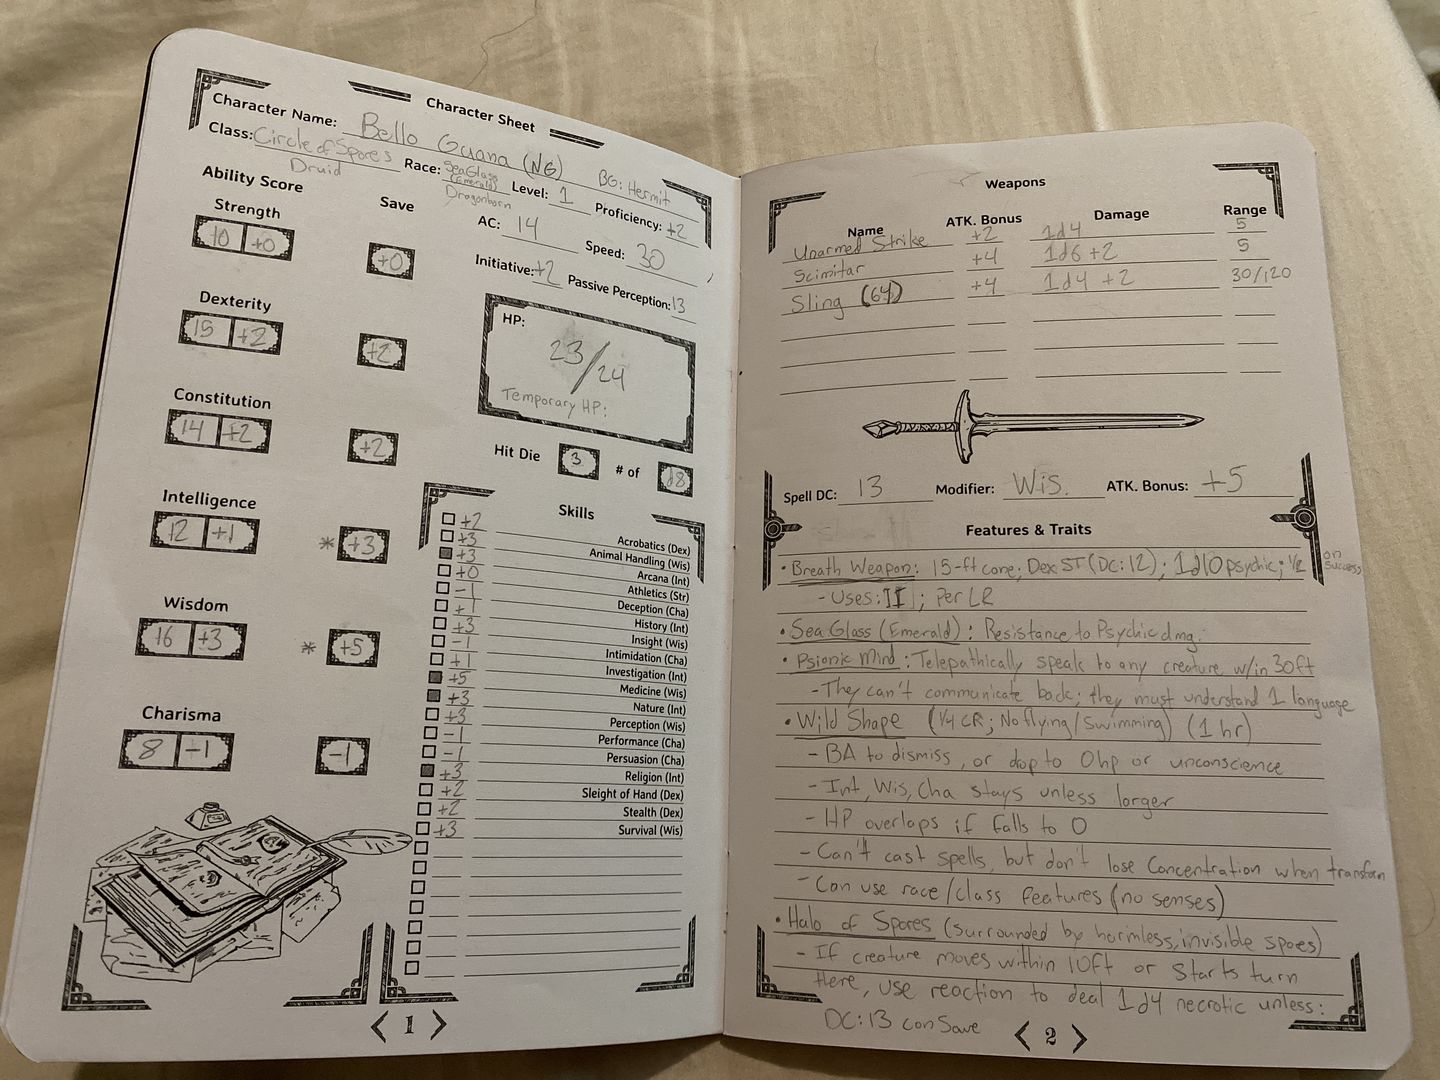 Character Sheet
Character Name: Bello Guana (NG)
BG: Hermit
Class: Circle of Spores
Druid
Race: Sea Glass
(Emerald)
Dragonborn
Level: 1
Proficiency: +2
Ability Score
Save
AC: 14
Speed: 30
Initiative: +2
Passive Perception: 13
Strength
10 +0
+0
Dexterity
15 +2
+2
Constitution
14 +2
+2
Intelligence
12 +1
* +3
Wisdom
16 +3
* +5
Charisma
8 -1
-1
HP:
23/24
Temporary HP:
Hit Die 3 # of d8
Skills
+2 Acrobatics (Dex)
+3 Animal Handling (Wis)
+3 Arcana (Int)
+0 Athletics (Str)
-1 Deception (Cha)
+1 History (Int)
+3 Insight (Wis)
-1 Intimidation (Cha)
+1 Investigation (Int)
+5 Medicine (Wis)
+3 Nature (Int)
+3 Perception (Wis)
-1 Performance (Cha)
-1 Persuasion (Cha)
+3 Religion (Int)
+2 Sleight of Hand (Dex)
+2 Stealth (Dex)
+3 Survival (Wis)
1
Weapons
Name ATK. Bonus Damage Range
Unarmed Strike +2 1d4 5
Scimitar +4 1d6 +2 5
Sling (64) +4 1d4 +2 30/120
Spell DC: 13 Modifier: Wis. ATK. Bonus: +5
Features & Traits
• Breath Weapon: 15-ft cone; Dex ST (DC: 12); 1d10 psychic; 1/2 on success
- Uses: II|; Per LR
• Sea Glass (Emerald): Resistance to Psychic dmg.
• Psionic Mind: Telepathically speak to any creature w/in 30ft
- They can't communicate back; they must understand 1 language
• Wild Shape (1/4 CR; No flying/Swimming) (1 hr)
- BA to dismiss, or drop to 0hp or unconscience
- Int, Wis, Cha stays unless larger
- HP overlaps if falls to 0
- Can't cast spells, but don't lose Concentration when transform
- Can use race/class features (no senses)
• Halo of Spores (surrounded by harmless, invisible spores)
- If creature moves within 10ft or starts turn
there, use reaction to deal 1d4 necrotic unless:
DC: 13 con Save
2